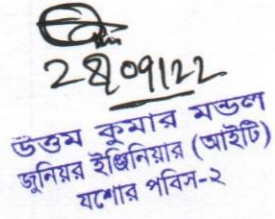 28/09/22
উত্তম কুমার মন্ডল
জুনিয়র ইঞ্জিনিয়ার (আইটি)
যশোর পবিস-২